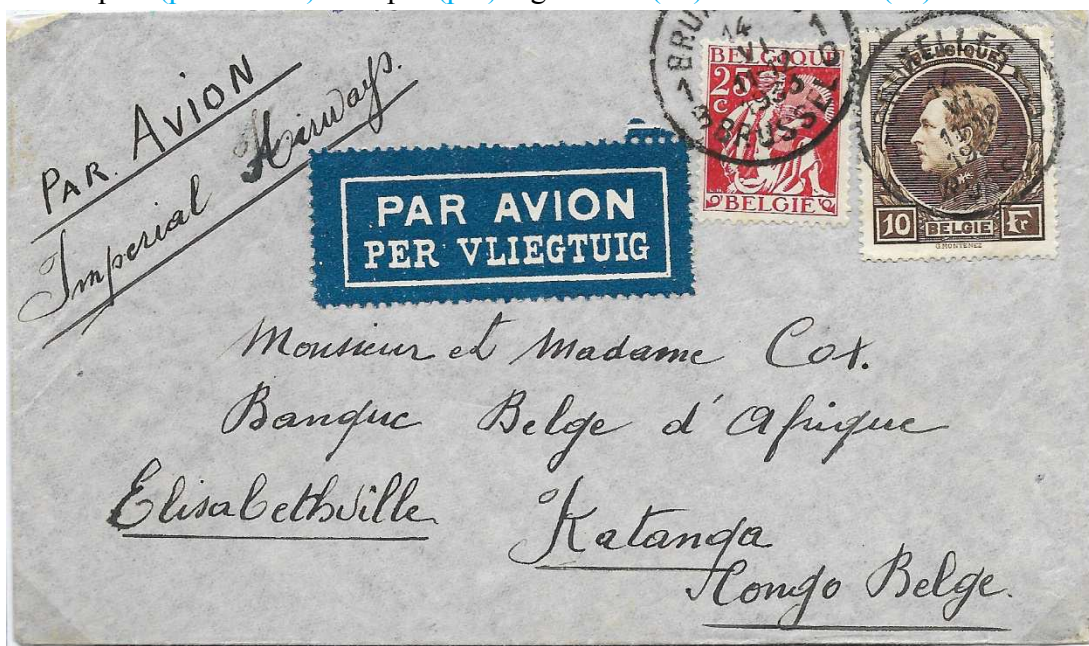 PAR AVION
Imperial Airways.
PAR AVION
PER VLIEGTUIG
BELGIQUE
25
C
BELGIE
BELGIQUE
10 BELGIE Fr
G.MONTENEZ
1 BRUSSEL 1
14
VI
Monsieur et Madame Cox.
Banque Belge d'Afrique
Elisabethville
Katanga
Congo Belge.